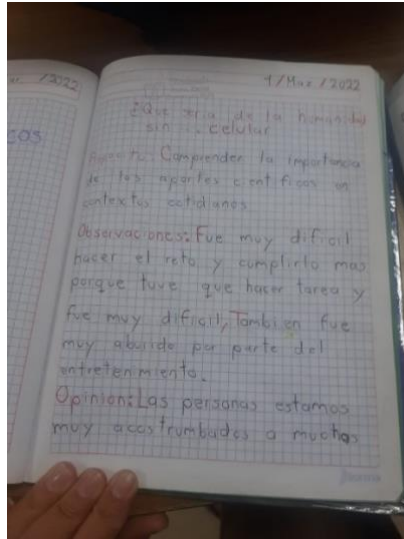 /2022
cos
1/Mar/2022
¿Que seria de la humanidad
sin celular
Comprender la importancia
de los aportes cientificos en
contextos cotidianos
Observaciones: Fue muy dificil
hacer el reto y cumplirlo mas
porque tuve que hacer tarea y
fue muy dificil, Tambien fue
muy aburido por parte del
entretenimiento.
Opinion: Las personas estamos
muy acostrumbados a muchas